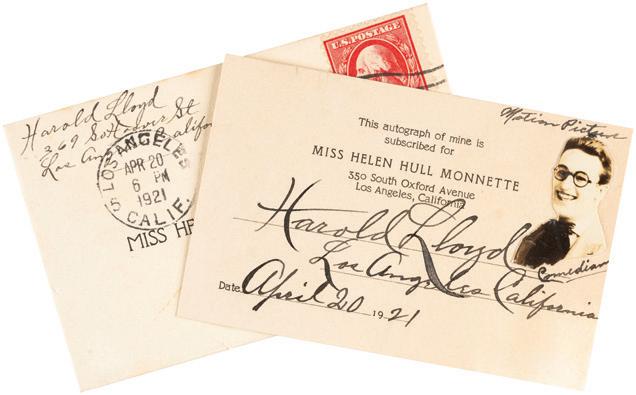 Harold Lloyd
369 So Hoover St
Los Angeles Californ
U.S. POSTAGE
LOS ANGELES
APR 20
6 PM
1921
5 CALIF. 5
MISS HE
Motion Picture
This autograph of mine is
subscribed for
MISS HELEN HULL MONNETTE
350 South Oxford Avenue
Los Angeles, California
Harold Lloyd
Comedian
Los Angeles California
Date April 20 1921